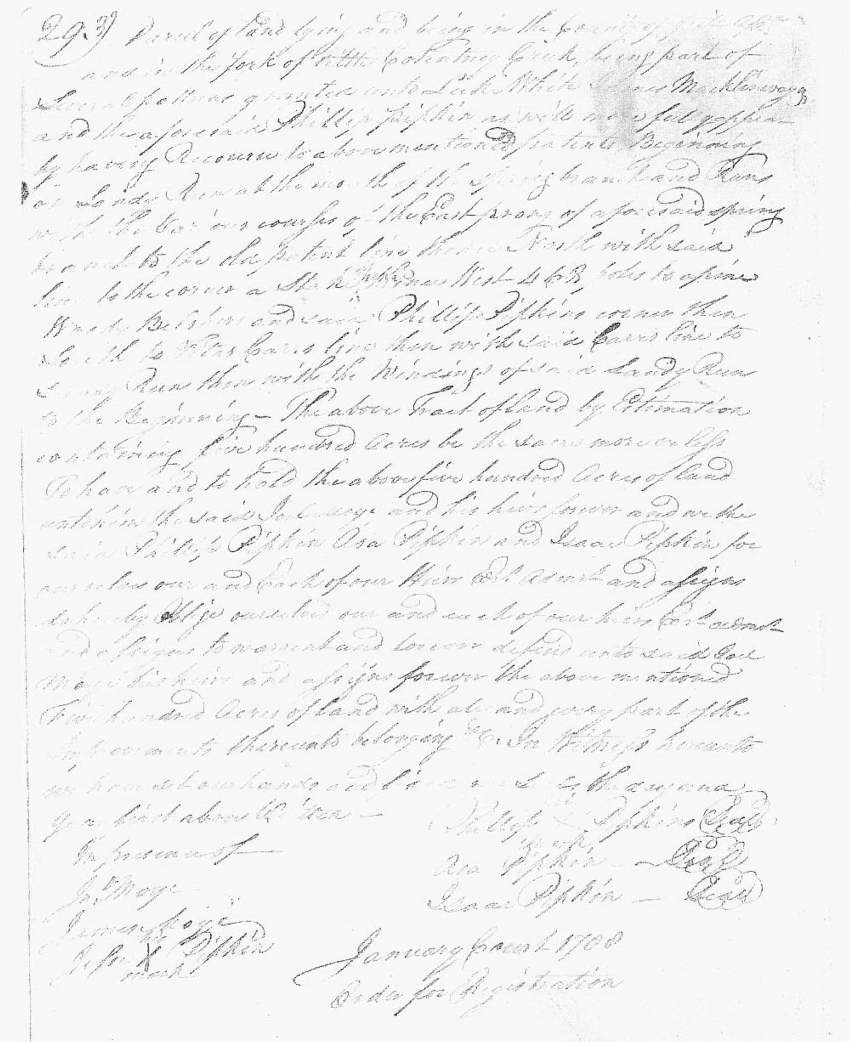 293)
Parcel of land lying and being in the County of
and in the fork of little Cotentney Creek, being part of
Several pattens granted unto Luke White James Macklinwayn
and the aforesaid Phillip Pipkin as will more fully appear
by having Recourse to above mentioned patents Beginning
on Sandy Run at the mouth of the Spring branch and Runs
with the Various courses of the East prong of aforesaid spring
branch to the old patent line thence North with said
line to the corner a Stake in the thence West 468 poles to a pine
and said Phillip Pipkins corner then
South to Carrs line then with said Carrs line to
Sandy Run then with the Windings of said Sandy Run
to the Beginning — The above Tract of land by Estimation
containing five hundred Acres be the same more or less
To have and to hold the above five hundred Acres of land
unto him the said Joel Moye and his heirs forever and we the
said Phillip Pipkin Asa Pipkin and Isaac Pipkin for
ourselves our and Each of our Heirs Exr. Admrs. and assigns
do hereby oblige ourselves our and each of our heirs Exr. admrs
and assigns to warrent and forever defend unto said Joel
Moye his heirs and assigns forever the above mentioned
Five hundred Acres of land with all and every part of the
Improvements thereunto belonging &c. In Witness hereunto
we have set our hands and seals the day and
year first above Written —
In presence of —
Jno. Moye
James Moye
his
Pipkin
mark
Phillip X Pipkins Seal
mark
Asa Pipkin — Seal
Isaac Pipkin — Seal
January Court 1788
Order for Registration